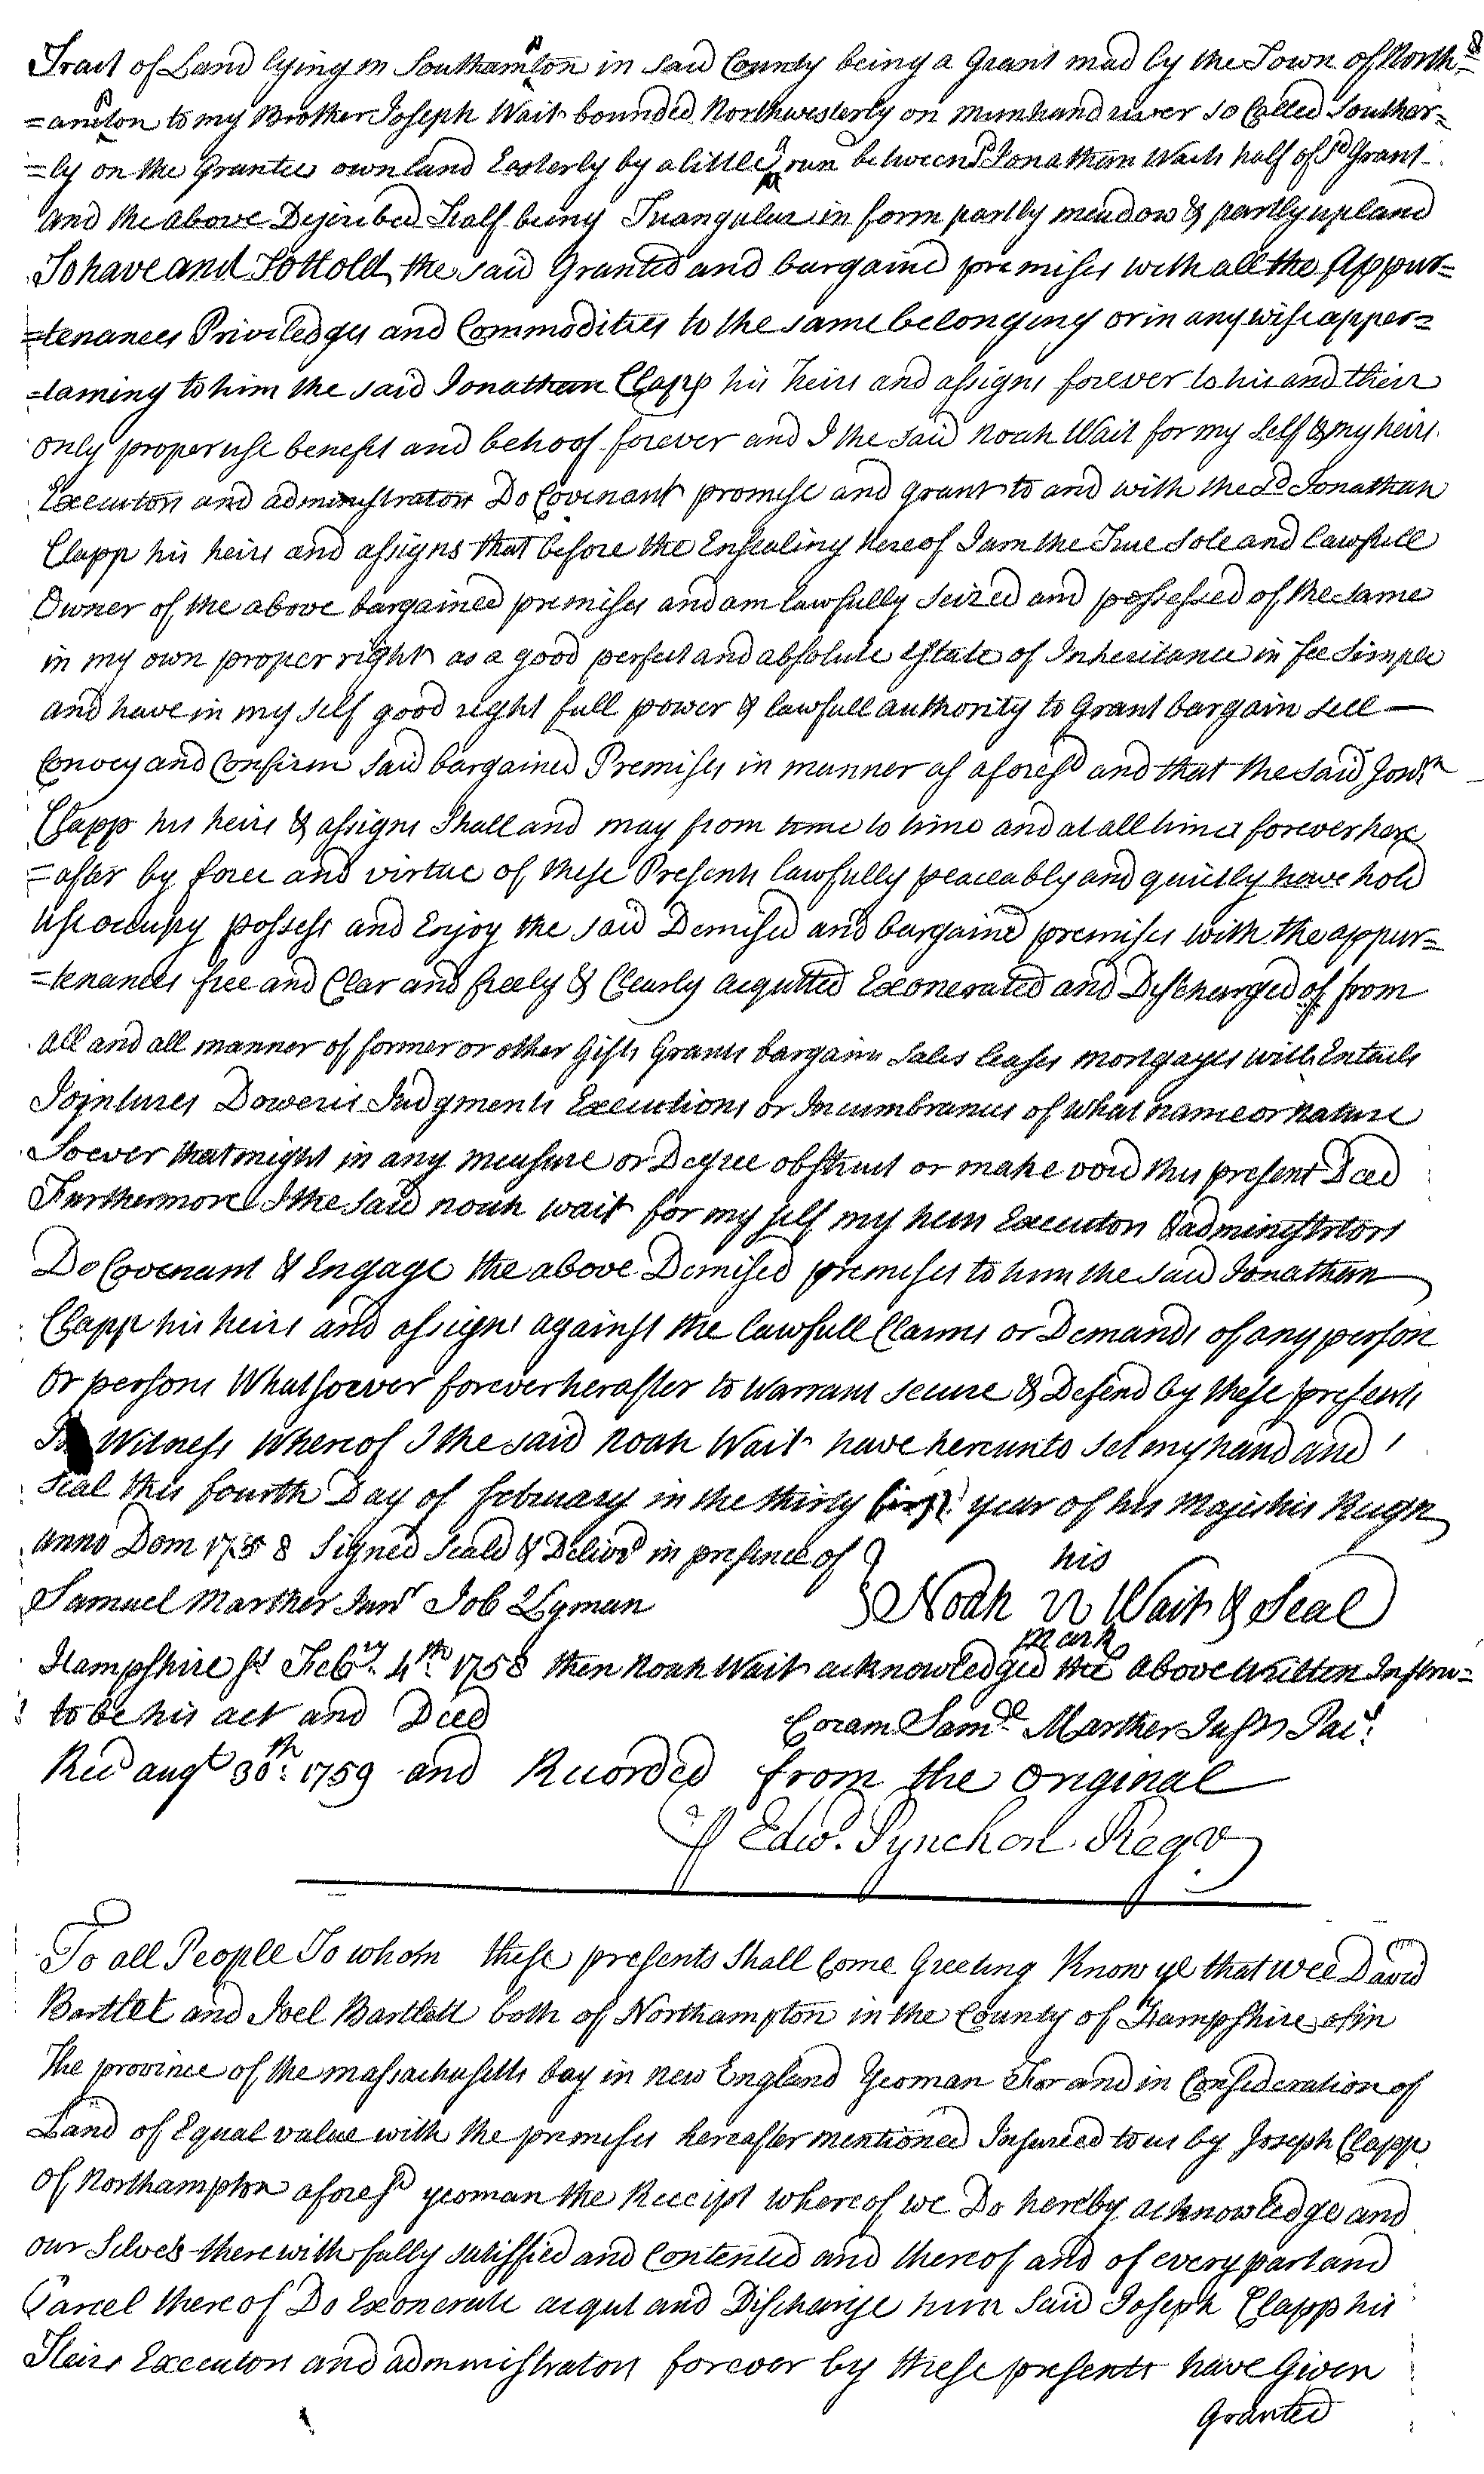 Tract of Land lying in Southampton in said County being a Grant mad by the Town of North=
=ampton to my Brother Joseph Wait bounded Northwesterly on munhand river so Called Souther=
=ly on the Grantees own land Easterly by a little run between Jonathan Waits half of sd Grant
and the above Described Half being Triangular in form partly meadow & partly upland
To have and To Hold the said Granted and bargaind premises with all the Appur=
=tenances Priviledges and Commodities to the same belonging or in any wise apper=
=taining to him the said Jonathan Clapp his heirs and assigns forever to his and their
only proper use benefit and behoof forever and I the said Noah Wait for my self & my heirs
Executors and administrators Do Covenant promise and grant to and with the sd Jonathan
Clapp his heirs and assigns that before the Ensealing hereof I am the True Sole and lawfull
Owner of the above bargained premises and am lawfully seized and possessed of the same
in my own proper right as a good perfect and absolute Estate of Inheritance in fee Simple
and have in my self good right full power & lawfull authority to Grant bargain sell —
Convey and Confirm said bargained Premises in manner as aforesd and that the said Jonth
Clapp his heirs & assigns Shall and may from time to time and at all times forever here
=after by force and virtue of these Presents lawfully peaceably and quietly have hold
use occupy possess and Enjoy the said Demised and bargaind premises with the appur=
=tenances free and Clar and freely & Clearly acquitted Exonerated and Discharged of from
all and all manner of former or other Gifts Grants bargains Sales leases mortgages wills Entails
Jointures Doweries Judgments Executions or Incumbrances of what name or nature
Soever that might in any measure or Degree obstruct or make void this present Deed
Furthermore I the said noah wait for my self my heirs Executors & adminstrtors
Do Covenant & Engage the above Demised premises to him the said Jonathan
Clapp his heirs and assigns against the lawfull Claims or Demands of any person
or persons Whatsoever forever herafter to Warrant secure & Defend by these presents
In Witness Whereof I the said Noah Wait have hereunto set my hand and
seal this fourth Day of february in the thirty year of his Majesties Reign
anno Dom 1758 Signed Seald & Delivd in presence of his
Samuel Marther Junr Job Lyman Noah Wait & Seal
mark
Hampshire ss Feby 4th 1758 then Noah Wait acknowledged the above written Instru=
to be his act and Deed Coram Saml Marther Justs Pacs
Recd augt 30th 1759 and Recorded from the Original
Edwd Pynchon Regr
To all People To whom these presents Shall Come Greeting Know ye that wee David
Bartlet and Joel Bartlett both of Northampton in the County of Hampshire in
The province of the massachusetts bay in new England Yeoman For and in Consideration of
Land of Equal value with the premises hereafter mentioned Insured to us by Joseph Clapp
of Northampton aforesd yeoman the Receipt whereof we Do hereby acknowledge and
our Selves therewith fully satisfied and Contented and thereof and of every part and
Parcel thereof Do Exonerate acqut and Discharge him said Joseph Clapp his
Heirs Executors and administrators forever by these presents have Given
Granted